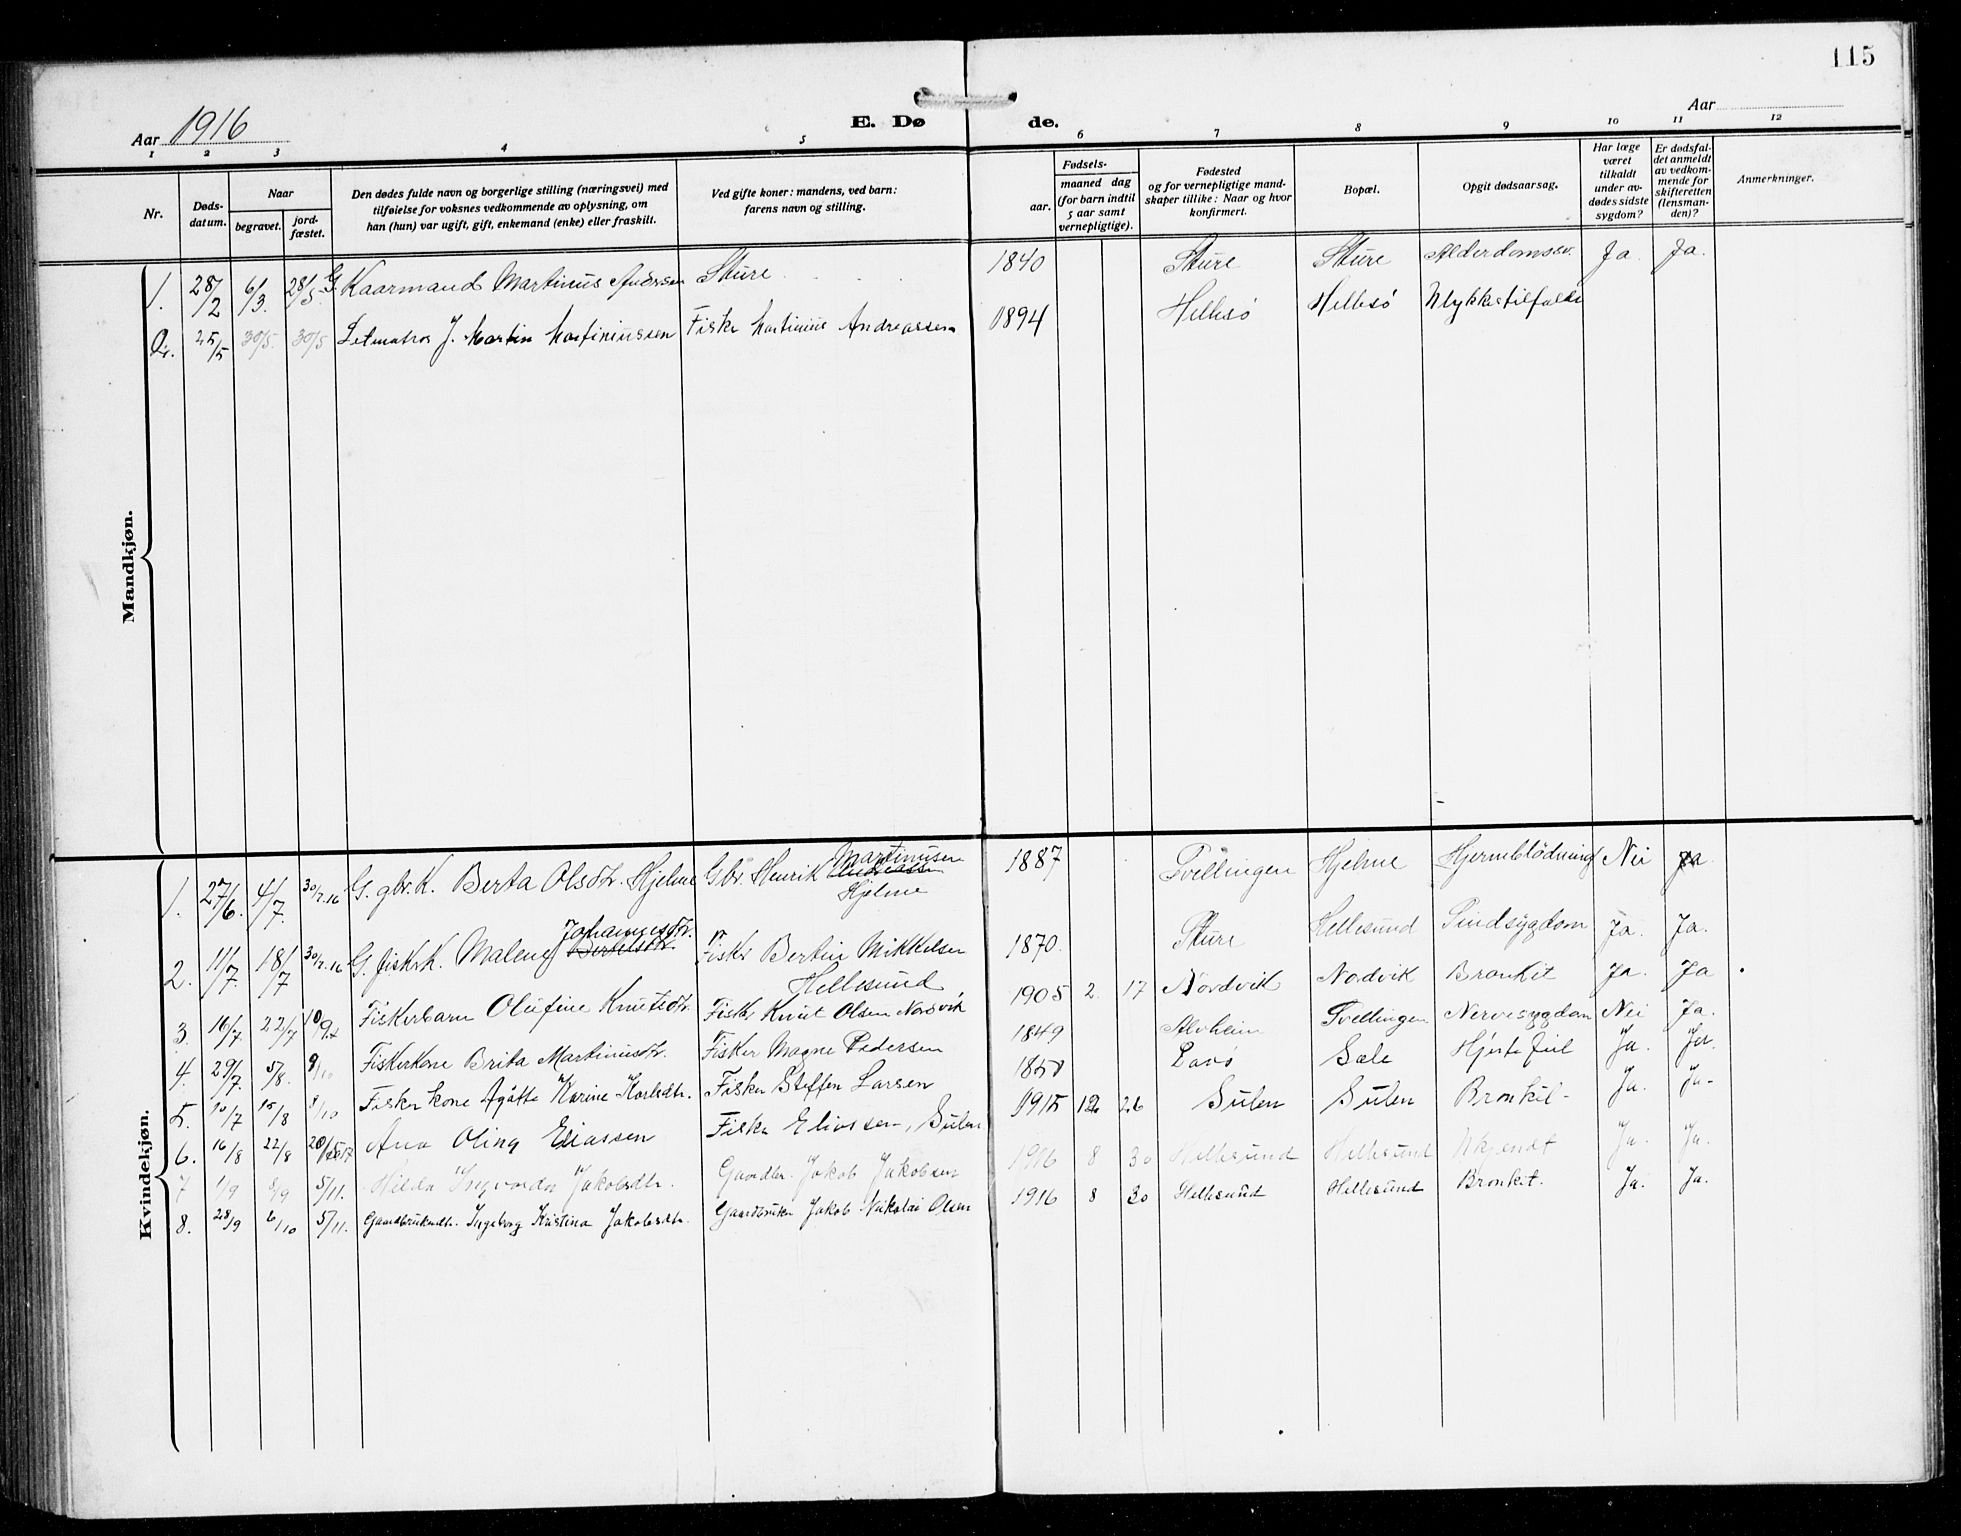 115
Aar 1916
E. Døde.
Aar
1 2 3 4 5 6 7 8 9 10 11 12
Nr.
Dødsdatum.
Naar
begravet.
jordfæstet.
Den dødes fulde navn og borgerlige stilling (næringsvei) med
tilføielse for voksnes vedkommende av oplysning, om
han (hun) var ugift, gift, enkemand (enke) eller fraskilt.
Ved gifte koner: mandens, ved barn:
farens navn og stilling.
Fødsels-
aar.
maaned dag
(for barn indtil
5 aar samt
vernepligtige).
Fødested
og for vernepligtige mand-
skaper tillike: Naar og hvor
konfirmert.
Bopæl.
Opgit dødsaarsag.
Har læge
været
tilkaldt
under av-
dødes sidste
sygdom?
Er dødsfal-
det anmeldt
av vedkom-
mende for
skifteretten
(lensman-
den)?
Anmerkninger.
Mandkjøn.
1. 28/2 6/3 28/5 G. Kaarmand Martinus Andersen Sture 1840 Sture Sture Alderdomssv. Ja. Ja.
2. 25/5 30/5. 30/5 Letmatros J. Martin Martiniussen Fisker Martinius Andreassen 1894 Hellesö Hellesö Ulykkestilfælde
Kvindekjøn.
1. 27/6. 4/7. 30/7.16 G. gbr.K. Berta Olsdtr. Hjelme Gbr. Henrik Martinusen Andreassen Hjelme 1887 Tvellingen Hjelme Hjerneblödning Nei Ja
2. 11/7. 18/7 30/7.16 G. fiskerk. Malene Johannesdtr. Bertelsdtr. Fisker Bertin Mikkelsen Hellesund 1870. Sture Hellesund Sindsygdom Ja. Ja.
3. 16/7 22/7 10/9. Fiskerbarn Olufine Knutsdtr. Fisker Knut Olsen Nordvik 1905 2. 17 Nordvik Nodvik Bronkit Ja. Ja
4. 29/7. 5/8. 8/10 Fiskerkone Brita Martinusdtr. Fisker Magne Pedersen 1849 Alvheim Tvellingen Nervesygdom Nei Ja.
5. 10/7 15/8 8/10 Fisker kone Agátte Karine Karlsdtr. Fisker Steffen Larsen 1850 Lavö Sæle Hjertefeil Ja. Ja.
6. 16/8 22/8 Ana Olina Eliassen Fisker Eliassen, Sulen 1915 12 26 Sulen Sulen Bronkit- Ja. Ja-
7 1/9 8/9 5/11. Hilda Ingvarda Jakobsdtr. Gaardbr. Jakob Jakobsen 1916 8 30 Hellesund Hellesund Ukjendt Ja. Ja.
8. 28/9 6/10 5/11. Gaardbrukerdtr. Ingeborg Kristina Jakobsdtr. Gaardbruker Jakob Nikolai Olsen 1916 8 30 Hellesund Hellesund Bronkit. Ja. Ja.